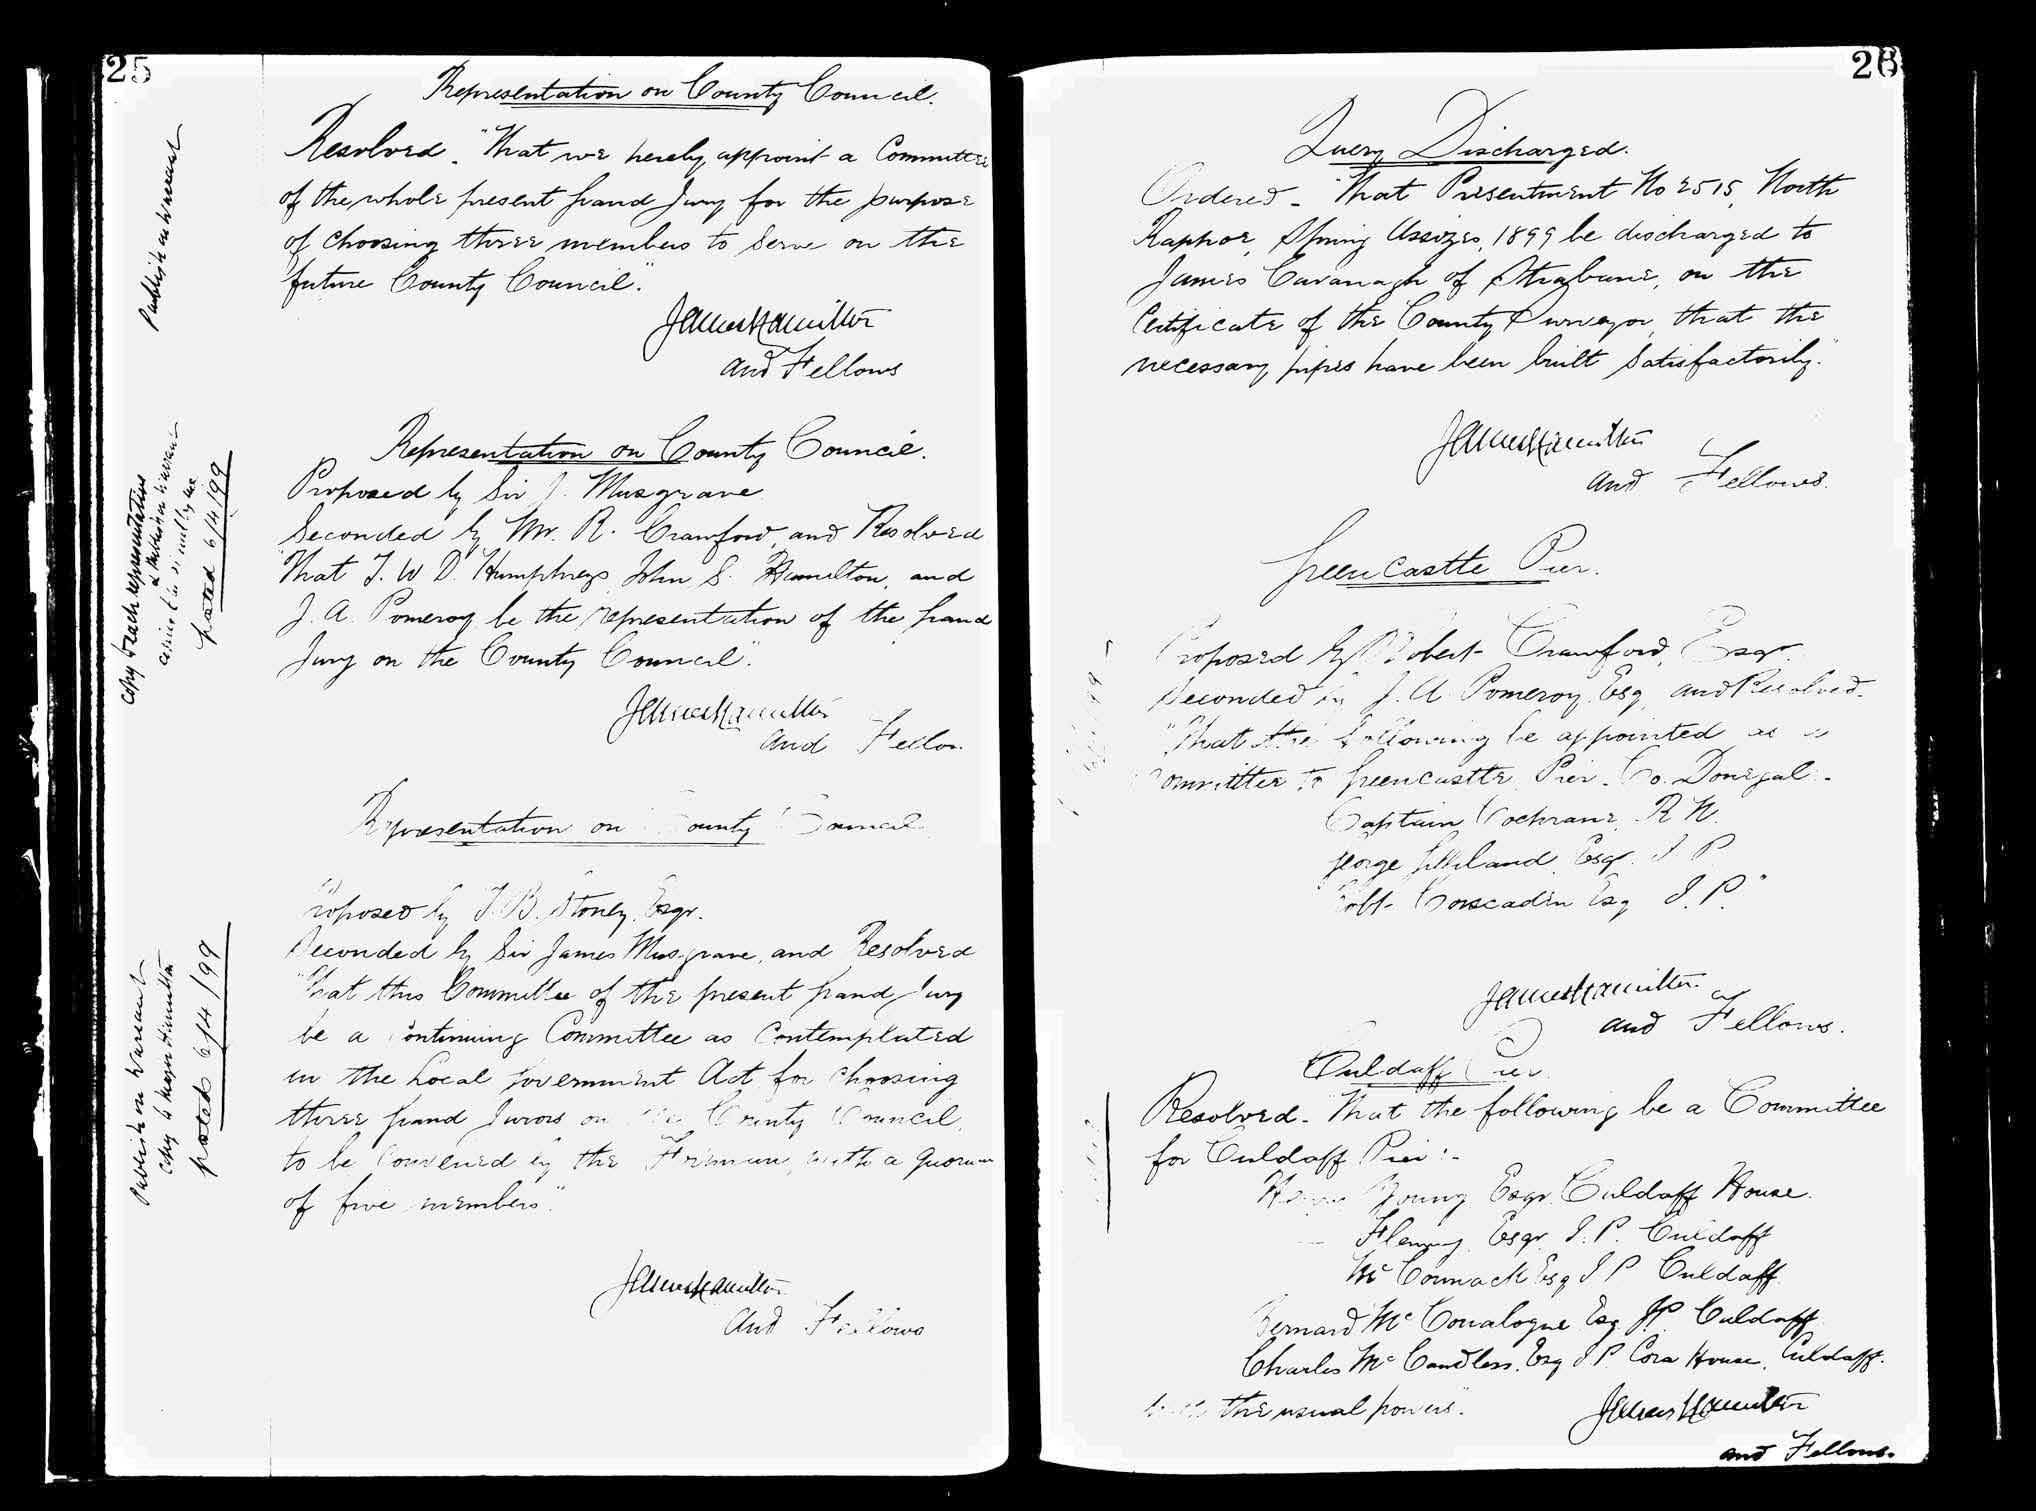 25
Representation on County Council.
Resolved. "That we hereby appoint a Committee
of the whole present Grand Jury for the purpose
of choosing three members to serve on the
future County Council."
James Hamilton
and Fellows
Publish on Warrant
Representation on County Council.
Proposed by Sir J. Musgrave
Seconded by Mr. R. Crawford, and Resolved
"That T. W. D. Humphreys, John S. Hamilton, and
J. A. Pomeroy be the representation of the Grand
Jury on the County Council."
James Hamilton
and Fellow
Copy to each representative
posted 6/4/99
Representation on County Council
Proposed by T. B. Stoney, Esqr.
Seconded by Sir James Musgrave, and Resolved
"That this Committee of the present Grand Jury
be a Continuing Committee as Contemplated
in the Local Government Act for choosing
three Grand Jurors on the County Council,
to be Convened by the Foreman, with a quorum
of five members"
James Hamilton
and Fellows
Publish on Warrant
Copy to Major Hamilton
posted 6/4/99
26
Query Discharged.
Ordered - "That Presentment No 2515, North
Raphoe, Spring Assizes, 1899 be discharged to
James Cavanagh of Strabane, on the
Certificate of the County Surveyor, that the
necessary pipes have been built satisfactorily."
James Hamilton
and Fellows.
Greencastle Pier.
Proposed by Robert Crawford, Esqr.
Seconded by J. A. Pomeroy, Esq, and Resolved.
"That the following be appointed as a
Committee to Greencastle Pier. Co. Donegal:-
Captain Cochrane, R. N.
George Gilliland, Esqr. J. P.
Robt. Corscaden Esq J. P."
James Hamilton
and Fellows.
Culdaff Pier
Resolved. "That the following be a Committee
for Culdaff Pier:-
Young Esqr. Culdaff House.
Fleming, Esqr. J. P. Culdaff
McCormack Esq J P Culdaff
Bernard McConalogue Esq. JP. Culdaff
Charles McCandless, Esq J P Cora House, Culdaff.
with the usual powers".
James Hamilton
and Fellows.